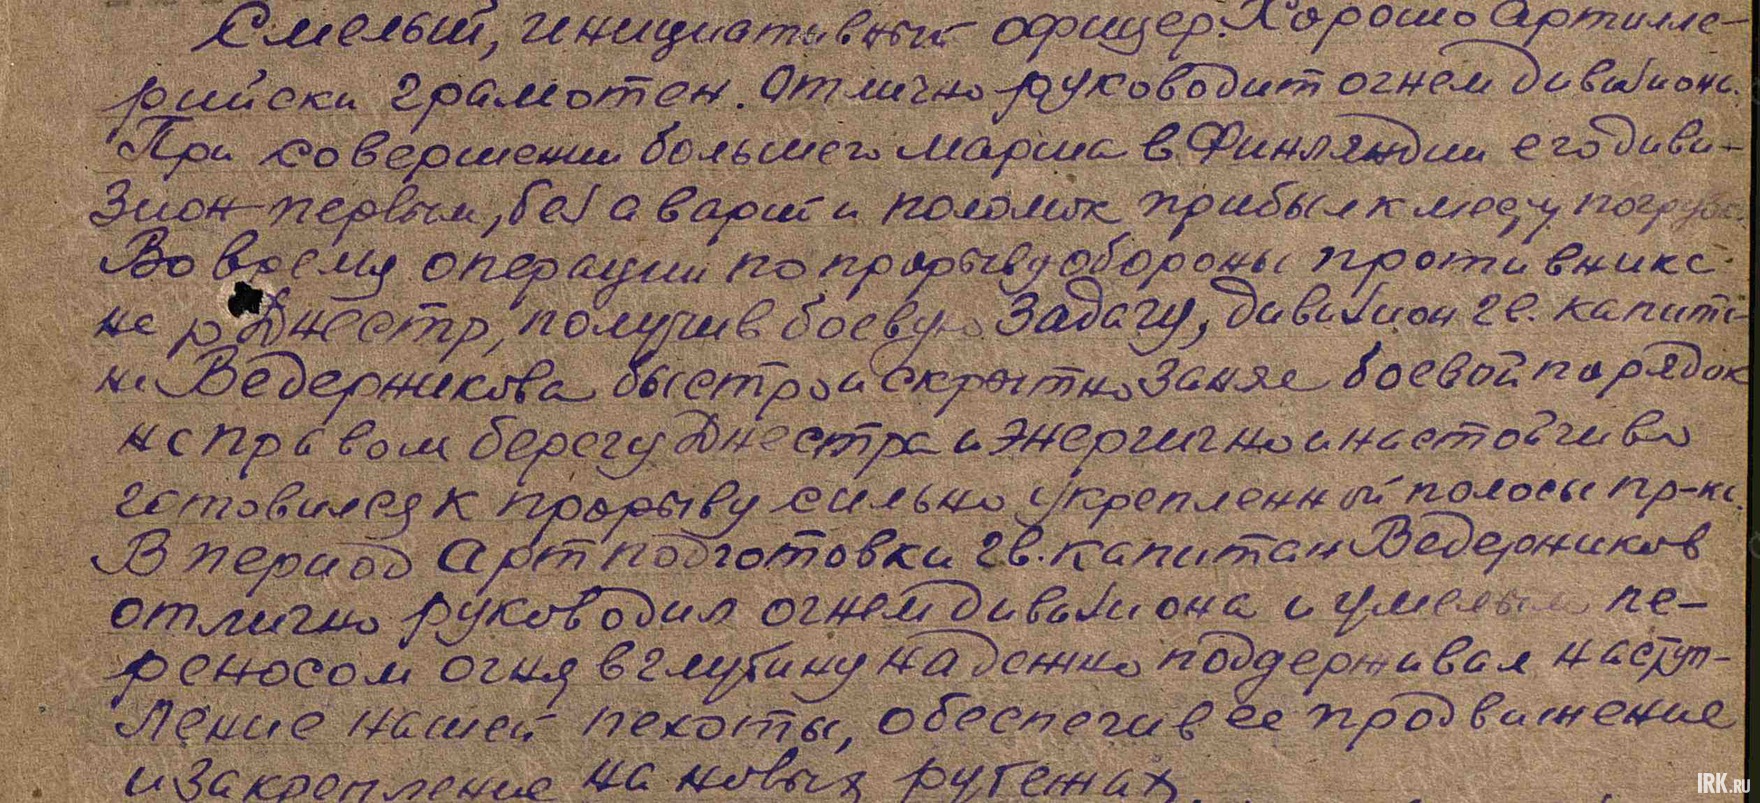 Смелый, инициативный офицер. Хорошо артилле-
рийски грамотен. Отлично руководит огнем дивизиона.
При совершении большего марша в Финляндии его диви-
зион первым, без аварий и поломок прибыл к месту погрузк
Во время операции по прорыву обороны противника
на р Днестр, получив боевую задачу, дивизион гв. капита-
на Ведерникова быстро и скрытно занял боевой порядок
на правом берегу Днестра и энергично и настойчиво
готовился к прорыву сильно укрепленной полосы пр-ка.
В период артподготовки гв. капитан Ведерников
отлично руководил огнем дивизиона и умелым пе-
реносом огня в глубину надежно поддерживал наступ-
ление нашей пехоты, обеспечив ее продвижение
и закрепление на новых рубежах
IRK.RU